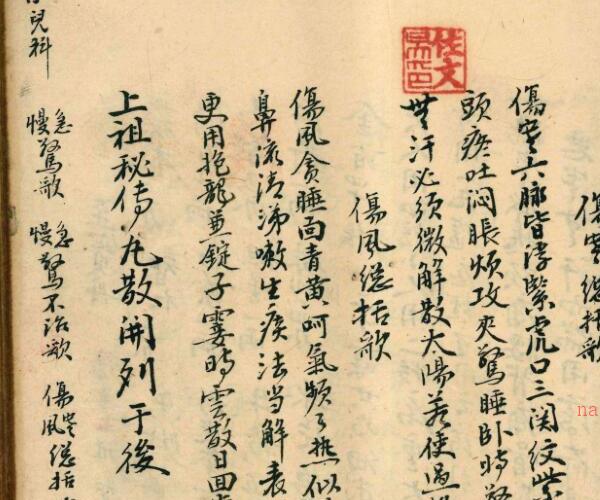 傷寒總括歌
傷寒六脉皆浮緊虎口三関紋紫
頭疼吐悶脹煩攻夾驚睡卧時驚
無汗必須微解散太陽若使過
傷風總括歌
傷風貪睡面青黄呵氣頻々热似
鼻流清涕嗽生痰法当解表
更用抱龍並錠子霎時雲散日回
上祖秘傳丸散開列于後
兒科
急慢驚歌 急慢驚不治歌 傷風總括
na